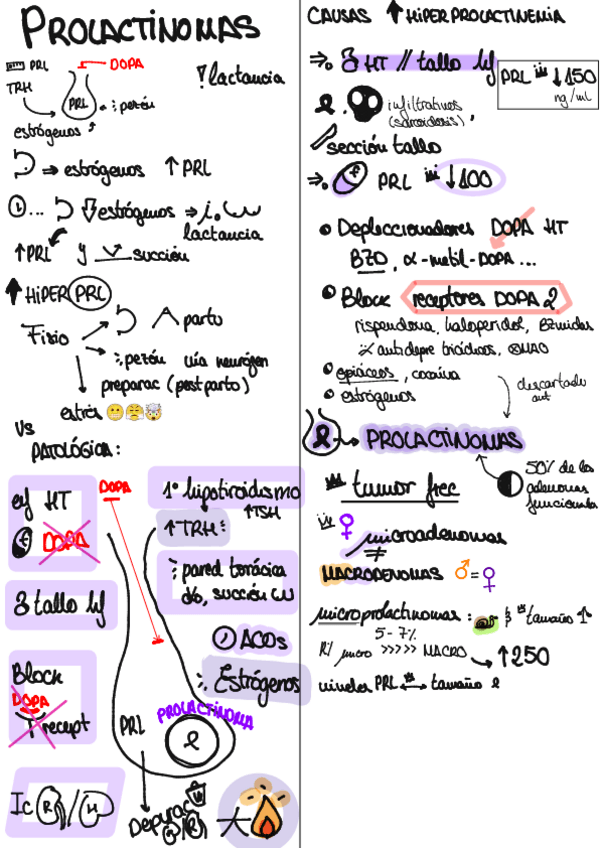 PROLACTINOMAS
PRL
DOPA
TRH
PRL
: pezón
estrógenos
! lactancia
⇒ estrógenos ↑ PRL
... estrógenos ⇒
lactancia
↑PRL y succión
↑ HiPER PRL
Fisio
parto
: pezón vía neurógen
preparac (postparto)
estrés 😬😤🤯
Vs
PATOLÓGICA:
HT
DOPA
DOPA
tallo
Block
DOPA
recept
Ic R / H
1º hipotiroidismo
↑TSH
↑TRH
: pared torácica
succión
ACOs
: Estrógenos
PROLACTINOMA
PRL
Depurac
R
CAUSAS ↑ HiPERPROLACTINEMIA
⇒. HT // tallo
PRL ↓150
ng/ml
infiltrativos
(sarcoidosis),
sección tallo
⇒. PRL ↓100
Depleccionadores DOPA HT
BZD, α-metil-DOPA...
Block receptores DOPA 2
risperidona, haloperidol,
antidepre tricíclicos, IMAO
opiáceos, cocaína
estrógenos
descartado
PROLACTINOMAS
tumor frec
50% de los
adenomas
funcionantes
♀ microadenomas
MACROADENOMAS ♂ = ♀
microprolactinomas: tamaño
5-7%
micro >>>>> MACRO
↑250
niveles PRL ↔ tamaño